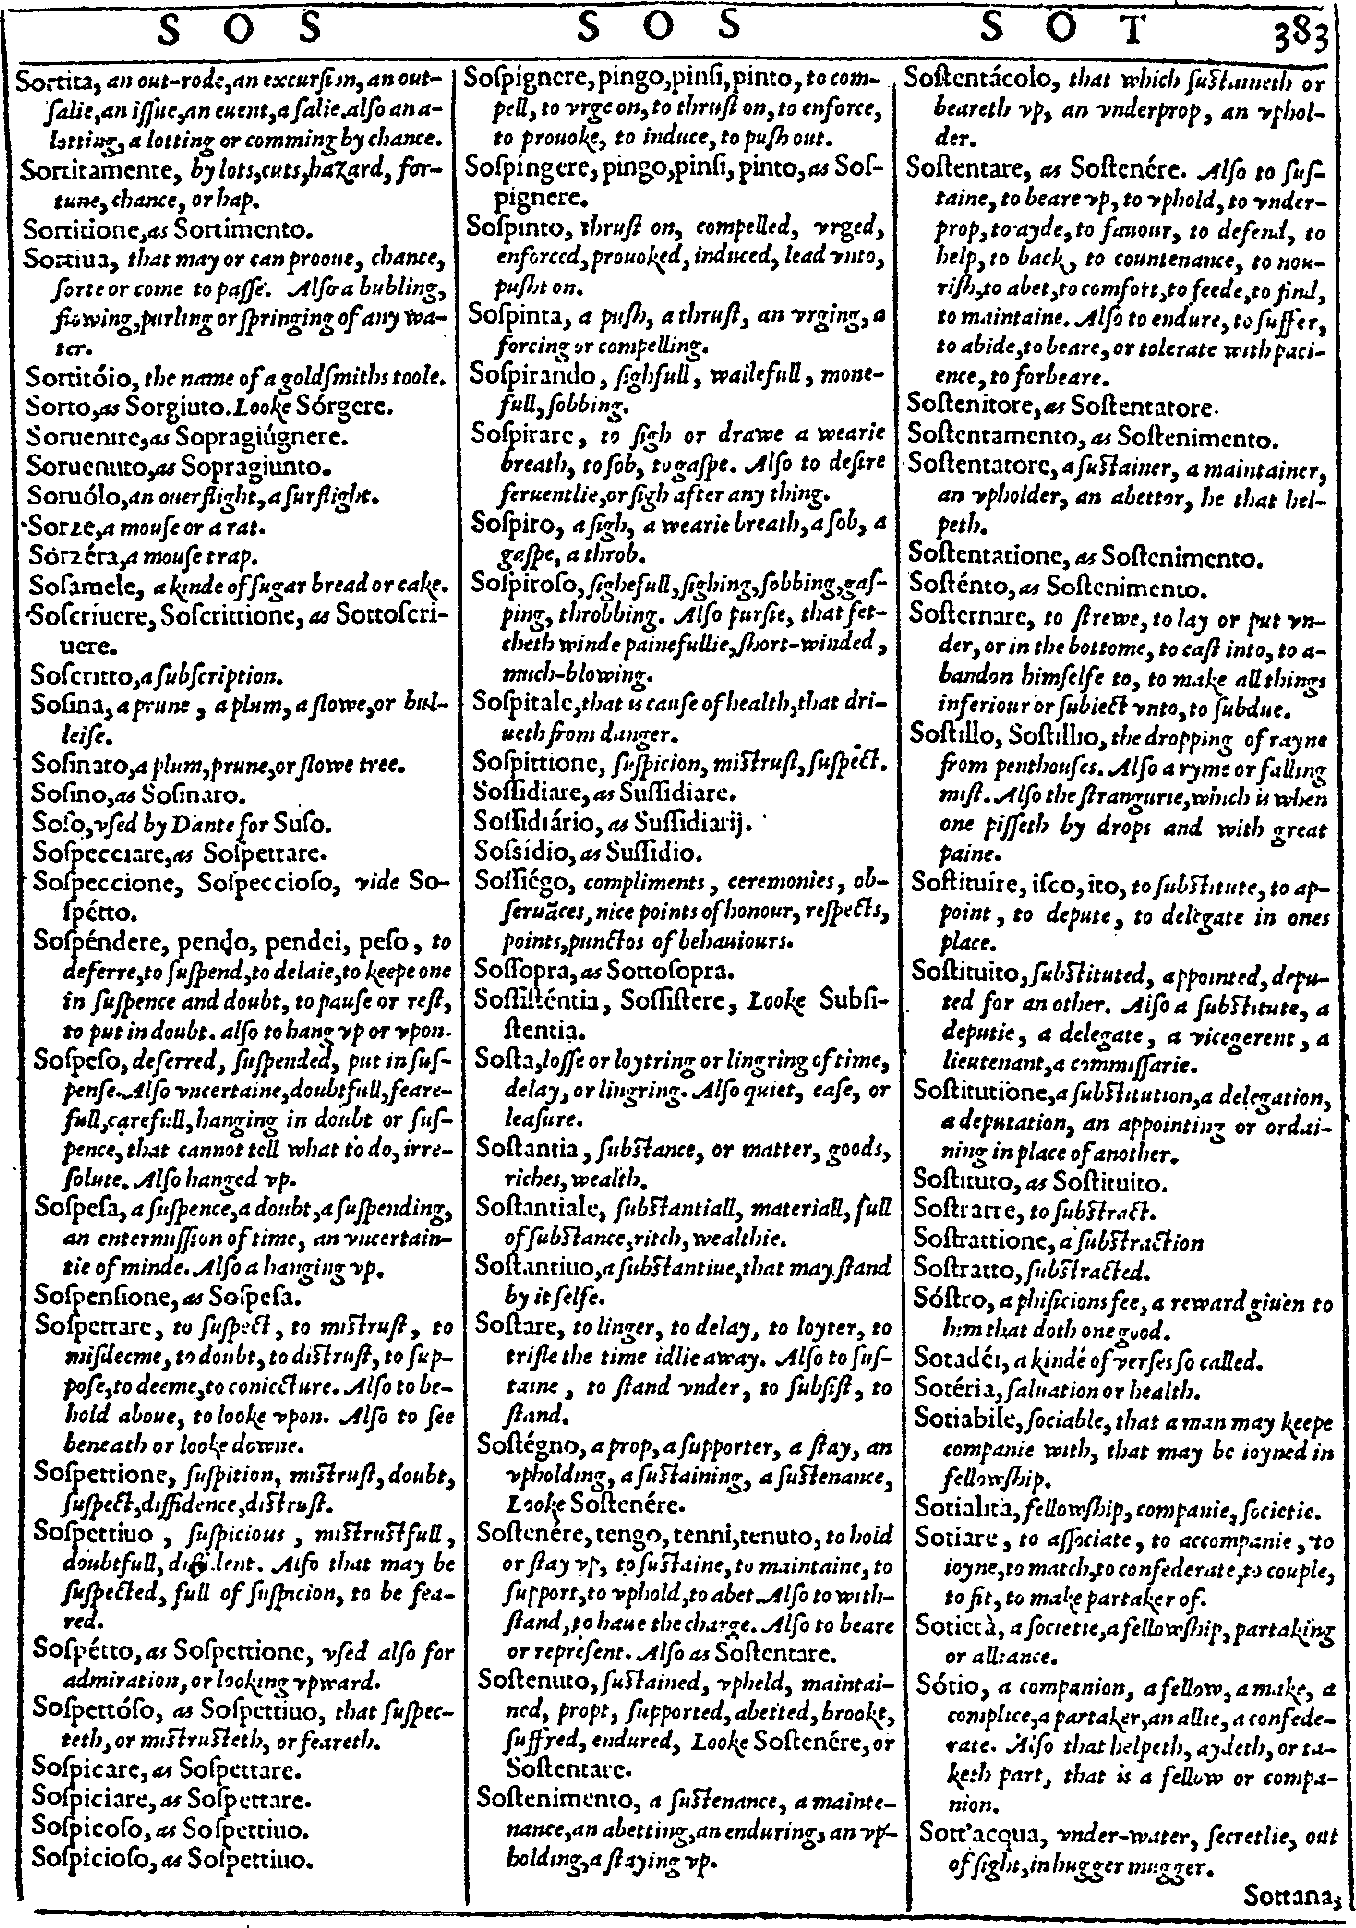 S O S
S O S
S O T
383
Sortita, an out-rode, an excursion, an out-
ſalie, an iſſue, an euent, a ſalie. alſo an a-
lotting, a lotting or comming by chance.
Sortitamente, by lots, cuts, hazard, for-
tune, chance, or hap.
Sortitione, as Sortimento.
Sortiua, that may or can prooue, chance,
ſorte or come to paſſe. Alſo a bubling,
flowing, purling or ſpringing of any wa-
ter.
Sortitóio, the name of a goldſmiths toole.
Sorto, as Sorgiuto. Looke Sórgere.
Soruenire, as Sopragiúgnere.
Soruenuto, as Sopragiunto.
Soruólo, an ouerflight, a ſurflight.
Sorze, a mouſe or a rat.
Sorzéra, a mouſe trap.
Soſamele, a kinde of ſugar bread or cake.
Soſcríuere, Soſcrittione, as Sottoſcri-
uere.
Soſcritto, a ſubſcription.
Soſina, a prune, a plum, a ſlowe, or bul-
leiſe.
Soſinato, a plum, prune, or ſlowe tree.
Soſino, as Soſinaro.
Soſo, vſed by Dante for Suſo.
Soſpecciare, as Soſpettare.
Soſpeccione, Soſpeccioſo, vide So-
ſpétto.
Soſpéndere, pendo, pendei, peſo, to
deferre, to ſuſpend, to delaie, to keepe one
in ſuſpence and doubt, to pauſe or reſt,
to put in doubt. alſo to hang vp or vpon.
Soſpeſo, deferred, ſuſpended, put in ſuſ-
penſe. Alſo vncertaine, doubtfull, feare-
full, carefull, hanging in doubt or ſuſ-
pence, that cannot tell what to do, irre-
ſolute. Alſo hanged vp.
Soſpeſa, a ſuſpence, a doubt, a ſuſpending,
an entermiſſion of time, an vncertain-
tie of minde. Alſo a hanging vp.
Soſpenſione, as Soſpeſa.
Soſpettare, to ſuſpect, to miſtruſt, to
miſdeeme, to doubt, to diſtruſt, to ſup-
poſe, to deeme, to coniecture. Alſo to be-
hold aboue, to looke vpon. Alſo to ſee
beneath or looke downe.
Soſpettione, ſuſpition, miſtruſt, doubt,
ſuſpect, diffidence, diſtruſt.
Soſpettiuo, ſuſpicious, miſtruſtfull,
doubtfull, diffident. Alſo that may be
ſuſpected, full of ſuſpicion, to be fea-
red.
Soſpétto, as Soſpettione, vſed alſo for
admiration, or looking vpward.
Soſpettóſo, as Soſpettiuo, that ſuſpec-
teth, or miſtruſteth, or feareth.
Soſpicare, as Soſpettare.
Soſpiciare, as Soſpettare.
Soſpicoſo, as Soſpettiuo.
Soſpicioſo, as Soſpettiuo.
Soſpignere, pingo, pinſi, pinto, to com-
pell, to vrge on, to thruſt on, to enforce,
to prouoke, to induce, to puſh out.
Soſpíngere, pingo, pinſi, pinto, as Soſ-
pignere.
Soſpinto, thruſt on, compelled, vrged,
enforced, prouoked, induced, lead vnto,
puſht on.
Soſpinta, a puſh, a thruſt, an vrging, a
forcing or compelling.
Soſpirando, ſighfull, wailefull, mone-
full, ſobbing.
Soſpirare, to ſigh or drawe a wearie
breath, to ſob, to gaſpe. Alſo to deſire
feruentlie, or ſigh after any thing.
Soſpiro, a ſigh, a wearie breath, a ſob, a
gaſpe, a throb.
Soſpiroſo, ſighefull, ſighing, ſobbing, gaſ-
ping, throbbing. Alſo purſie, that fet-
cheth winde painefullie, ſhort-winded,
much-blowing.
Soſpitale, that is cauſe of health, that dri-
ueth from danger.
Soſpittione, ſuſpicion, miſtruſt, ſuſpect.
Soſſidiare, as Suſſidiare.
Soſſidiário, as Suſſidiarij.
Soſſidio, as Suſſidio.
Soſſiégo, compliments, ceremonies, ob-
ſeruãces, nice points of honour, reſpects,
points, punctos of behauiours.
Soſſopra, as Sottoſopra.
Soſſiſténtia, Soſſiſtere, Looke Subſi-
ſtentia.
Soſta, loſſe or loytring or lingring of time,
delay, or lingring. Alſo quiet, eaſe, or
leaſure.
Soſtantia, ſubſtance, or matter, goods,
riches, wealth.
Soſtantiale, ſubſtantiall, materiall, full
of ſubſtance, ritch, wealthie.
Soſtantiuo, a ſubſtantiue, that may ſtand
by it ſelfe.
Soſtare, to linger, to delay, to loyter, to
trifle the time idlie away. Alſo to ſuſ-
taine, to ſtand vnder, to ſubſiſt, to
ſtand.
Soſtégno, a prop, a ſupporter, a ſtay, an
vpholding, a ſuſtaining, a ſuſtenance,
Looke Soſtenére.
Soſtenére, tengo, tenni, tenuto, to hold
or ſtay vp, to ſuſtaine, to maintaine, to
ſupport, to vphold, to abet. Alſo to with-
ſtand, to haue the charge. Alſo to beare
or repreſent. Alſo as Soſtentare.
Soſtenuto, ſuſtained, vpheld, maintai-
ned, propt, ſupported, abetted, brookt,
ſuffred, endured, Looke Soſtenére, or
Soſtentare.
Soſtenimento, a ſuſtenance, a mainte-
nance, an abetting, an enduring, an vp-
holding, a ſtaying vp.
Soſtentácolo, that which ſuſtaineth or
beareth vp, an vnderprop, an vphol-
der.
Soſtentare, as Soſtenére. Alſo to ſuſ-
taine, to beare vp, to vphold, to vnder-
prop, to ayde, to fauour, to defend, to
help, to back, to countenance, to nou-
riſh, to abet, to comfort, to feede, to find,
to maintaine. Alſo to endure, to ſuffer,
to abide, to beare, or tolerate with paci-
ence, to forbeare.
Soſtenitore, as Soſtentatore.
Soſtentamento, as Soſtenimento.
Soſtentatore, a ſuſtainer, a maintainer,
an vpholder, an abettor, he that hel-
peth.
Soſtentatione, as Soſtenimento.
Soſténto, as Soſtenimento.
Soſternare, to ſtrewe, to lay or put vn-
der, or in the bottome, to caſt into, to a-
bandon himſelfe to, to make all things
inferiour or ſubiect vnto, to ſubdue.
Soſtillo, Soſtillio, the dropping of rayne
from penthouſes. Alſo a ryme or falling
miſt. Alſo the ſtrangurie, which is when
one piſſeth by drops and with great
paine.
Soſtituíre, iſco, ito, to ſubſtitute, to ap-
point, to depute, to delegate in ones
place.
Soſtituito, ſubſtituted, appointed, depu-
ted for an other. Alſo a ſubſtitute, a
deputie, a delegate, a vicegerent, a
lieutenant, a commiſſarie.
Soſtitutione, a ſubſtitution, a delegation,
a deputation, an appointing or ordai-
ning in place of another.
Soſtituto, as Soſtituito.
Soſtrarre, to ſubſtract.
Soſtrattione, a ſubſtraction
Soſtratto, ſubſtracted.
Sóſtro, a phiſicions fee, a reward giuen to
him that doth one good.
Sotadéi, a kinde of verſes ſo called.
Sotéria, ſaluation or health.
Sotiabile, ſociable, that a man may keepe
companie with, that may be ioyned in
fellowſhip.
Sotialità, fellowſhip, companie, ſocietie.
Sotiare, to aſſociate, to accompanie, to
ioyne, to match, to confederate, to couple,
to fit, to make partaker of.
Sotietà, a ſocietie, a fellowſhip, partaking
or alliance.
Sótio, a companion, a fellow, a make, a
complice, a partaker, an allie, a confede-
rate. Alſo that helpeth, aydeth, or ta-
keth part, that is a fellow or compa-
nion.
Sott'acqua, vnder-water, ſecretlie, out
of ſight, in hugger mugger.
Sottana,